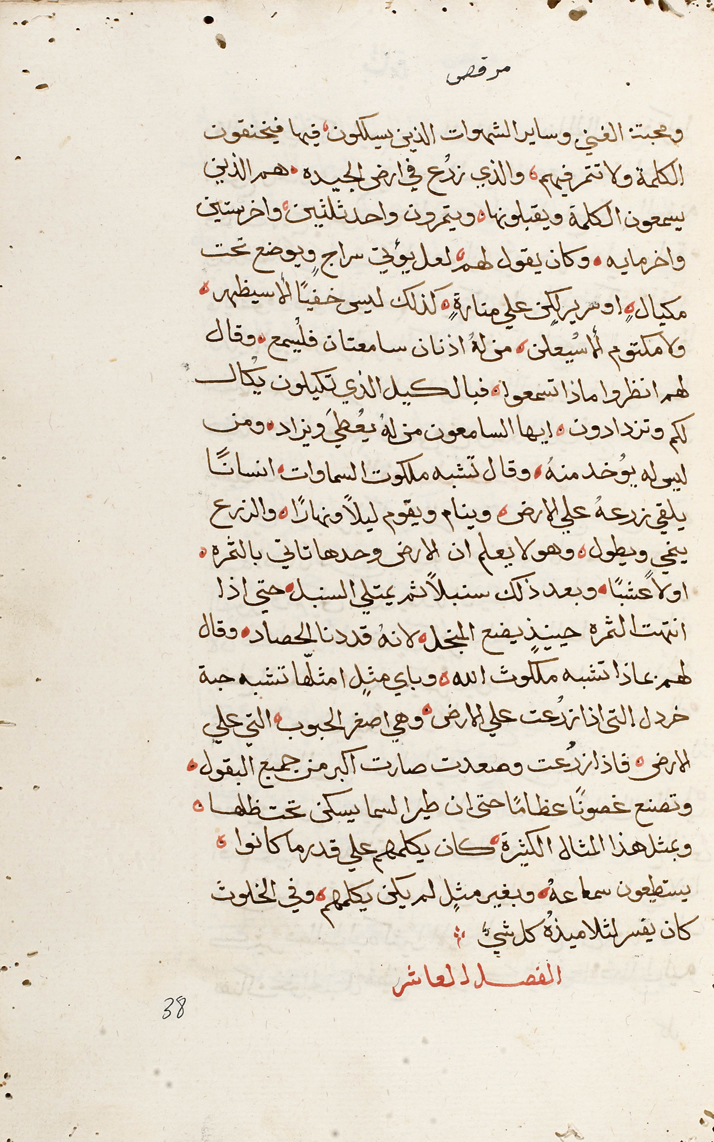 مرقص
ومحبتة الغني وساير الشهوات الذين يسلكون فيها فيختنقون
الكلمة ولا تثمر فيهم والذي زرُع في ارض الجيده هم الذين
يسمعون الكلمة ويقبلونها ويثمرون واحد ثلثين واخر ستين
واخر مايه وكان يقول لهم لعل يؤتي سراج ويوضع تحت
مكيالٍ او سرير لكن علي منارةٍ كذلك ليس خفيًا الا سيظهر
ولا مكتوم الا سيُعلن من لهُ اذنان سامعتان فليسمع وقال
لهم انظروا ماذا تسمعوا فبالكيل الذي تكيلون يكال
لكم وتزدادون ايها السامعون من لهُ يعُطيَ ويزاد ومن
ليس له يوُخد منهُ وقال تشبه ملكوت السماوات انسانًا
يلقي زرعهُ علي الارض وينام ويقوم ليلاً ونهارًا والزرع
ينمي ويطول وهو لا يعلم ان الارض وحدها تاتي بالثمرة
اولاً عشبًا وبعد ذلك سنبلاً ثم يمتلي السنبل حتي اذا
انتهت الثمرة حينيذٍ يضع المنجل لانهُ قد دنا الحصاد وقال
لهم بماذا تشبه ملكوت الله وباي مثلٍ امثلها تشبه حبة
خردل التي اذا زرُعت علي الارض وهي اصغر الحبوب التي علي
الارض فاذا زرُعت وصعدت صارت اكبر من جميع البقول
وتصنع غصونًا عظامًا حتى ان طير السما يسكن تحت ظلها
وبمثل هذا المثال الكثيرة كان يكلمهم علي قدر ما كانوا
يستطعون سماعهُ وبغير مثلٍ لم يكن يكلمهم وفي الخلوت
كان يفسر لتلاميذهُ كل شيٍّ
الفصل العاشر
38